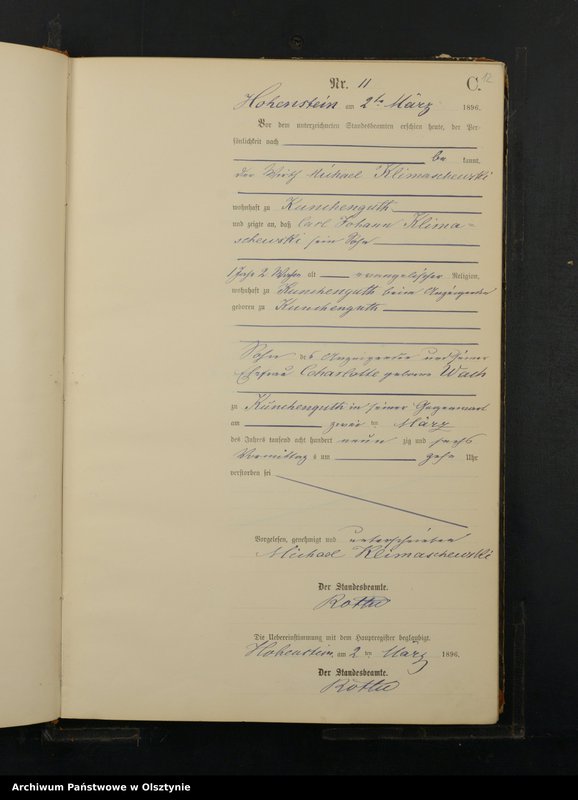 12
Nr. 11 C.
Hohenstein am 2ten März 1896.
Vor dem unterzeichneten Standesbeamten erschien heute, der Per-
sönlichkeit nach
be kannt,
der Wirth Michael Klimaschewski
wohnhaft zu Kunchenguth
und zeigte an, daß Carl Johann Klima-
schewski sein Sohn
1 Jahr 2 Wochen alt evangelischer Religion,
wohnhaft zu Kunchenguth beim Anzeigenden
geboren zu Kunchenguth
Sohn des Anzeigenden und seiner
Ehefrau Charlotte geborene Wach
zu Kunchenguth in seiner Gegenwart
am zwei ten März
des Jahres tausend acht hundert neun zig und sechs
Vormittag s um zehn Uhr
verstorben sei
Vorgelesen, genehmigt und unterschrieben
Michael Klimaschewski
Der Standesbeamte.
Die Uebereinstimmung mit dem Hauptregister beglaubigt.
Hohenstein, am 2 ten März 1896.
Der Standesbeamte.
Archiwum Państwowe w Olsztynie